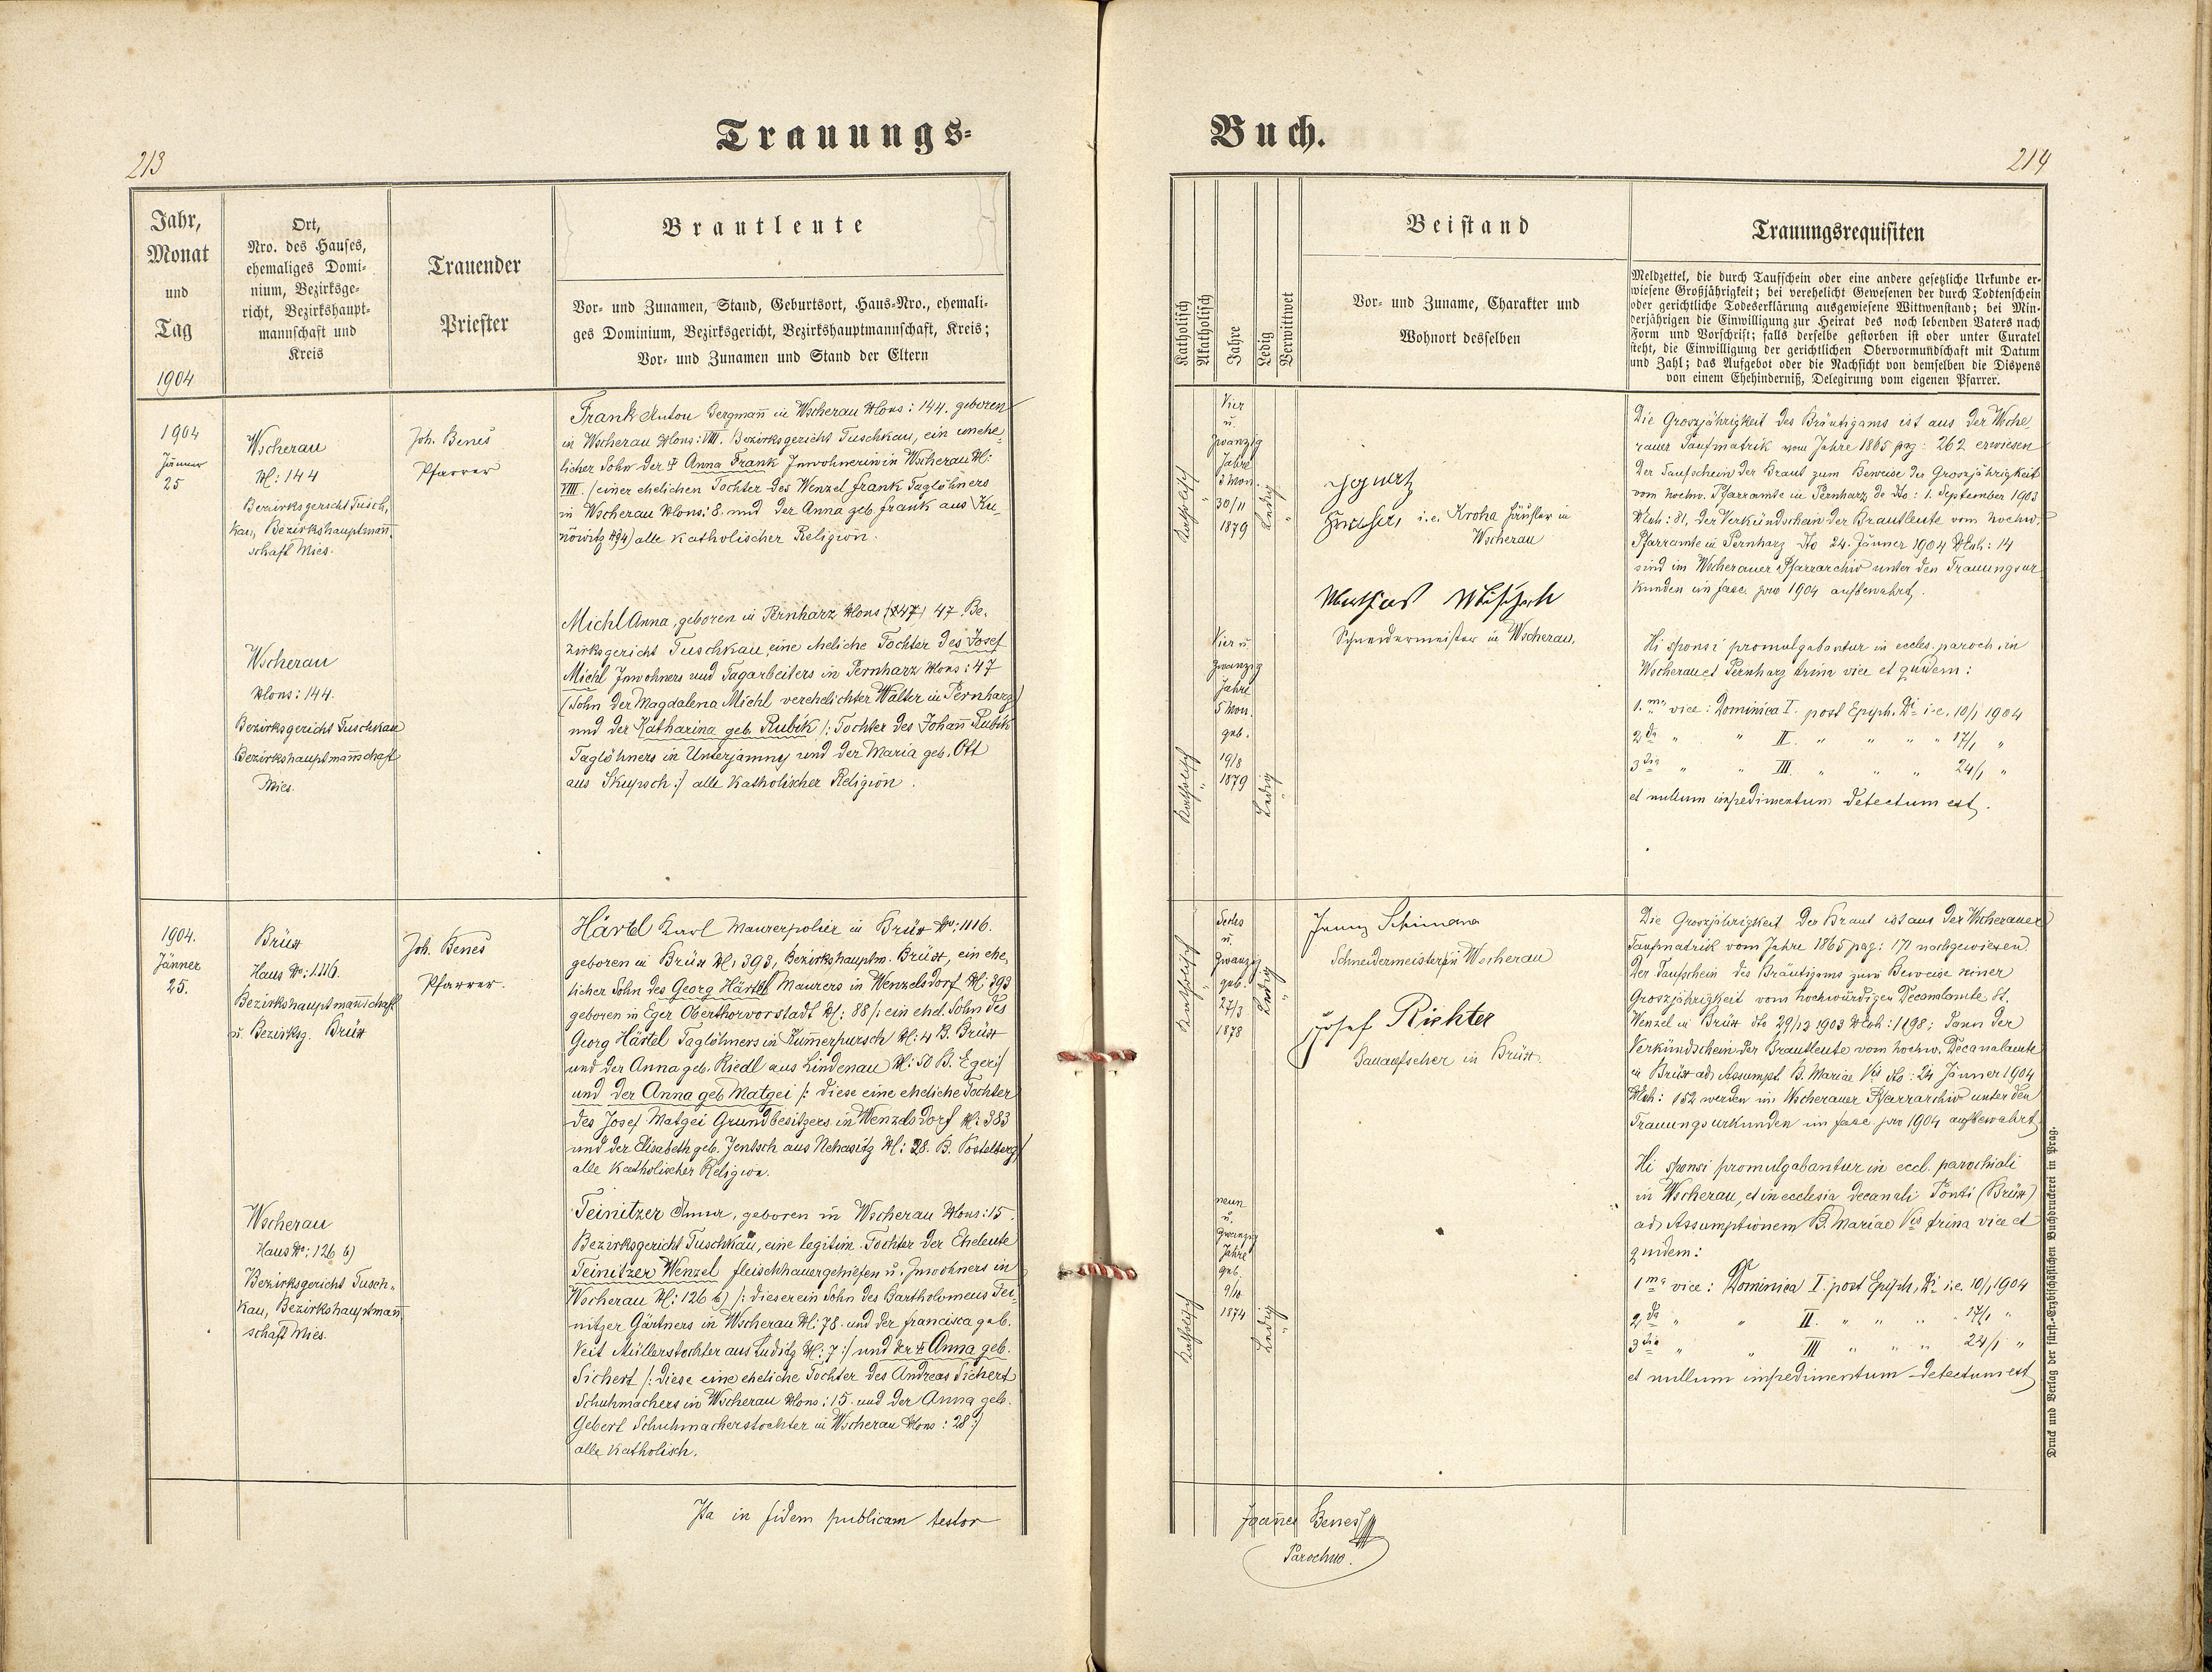 Trauungs=
213
Jahr,
Monat
und
Tag
1904
Ort,
Nro. des Hauses,
ehemaliges Domi=
nium, Bezirksge=
richt, Bezirkshaupt=
mannschaft und
Kreis
Trauender
Priester
Brautleute
Vor- und Zunamen, Stand, Geburtsort, Haus-Nro., ehemali=
ges Dominium, Bezirksgericht, Bezirkshauptmannschaft, Kreis;
Vor- und Zunamen und Stand der Eltern
1904
Jänner
25
Wscherau
N: 144
Bezirksgericht Tusch,
kau, Bezirkshauptmañ,
schaft Mies.
Joh. Beneš
Pfarrer
Frank Anton Bergmañ in Wscherau NCons: 144. geboren
in Wscherau NCons: VIII. Bezirksgericht Tuschkau, ein unehe,
licher Sohn der † Anna Frank Inwohnerin in Wscherau N:
VIII. /einer ehelichen Tochter des Wenzel Frank Taglöhners
in Wscherau NCons: 8. und der Anna geb. Frank aus
N94) alle katholischer Religion.
Wscherau
NCons: 144.
Bezirksgericht Tuschkau
Bezirkshauptmañschaft
Mies.
Michl Anna, geboren in Pernharz NCons 47 Be,
zirksgericht Tuschkau, eine eheliche Tochter des Josef
Michl Inwohners und Tagarbeiters in Pernharz NCons: 47
(Sohn der Magdalena Michl verehelichter Walter in Pernharz)
und der Katharina geb. Rubik /: Tochter des Johañ Rubik
Taglöhners in Unterjamny und der Maria geb. Ott
aus Skupsch :/ alle katholischer Religion.
1904.
Jänner
25.
Brüx
Haus No: 1116.
Bezirkshauptmañschaft
u. Bezirksg. Brüx
Joh. Beneš
Pfarrer.
Härtel Karl Maurerpolier in Brüx No: 1116.
geboren in Brüx N: 393, Bezirkshauptm. Brüx, ein ehe,
licher Sohn des Georg Härtel Maurers in Wenzelsdorf N: 393
geboren in Eger Oberthorvorstadt N: 88 /: ein ehel. Sohn des
Georg Härtel Taglöhners in Kum̃erpursch N: 4 B. Brüx
und der Anna geb. Riedl aus Lindenau N: 50 B. Eger:/
und der Anna geb Matgei /: diese eine eheliche Tochter
des Josef Matgei Grundbesitzers in Wenzelsdorf N: 383
und der Elisabeth geb. Jentsch aus Nehasitz N: 28. B. Postelberg/
alle katholischer Religion.
Wscherau
Haus No: 126 b)
Bezirksgericht Tusch=
kau, Bezirkshauptmañ,
schaft Mies.
Teinitzer Anna, geboren in Wscherau NCons: 15.
Bezirksgericht Tuschkau, eine legitim. Tochter der Eheleute
Teinitzer Wenzel Fleischhauergehilfen u. Inwohners in
Wscherau N: 126 b) /: dieser ein Sohn des Bartholomeus Tei,
nitzer Gärtners in Wscherau N: 78. und der Francisca geb.
Veit Müllerstochter aus Luditz N: 7 :/ und der † Anna geb.
Sichert /: diese eine eheliche Tochter des Andreas Sichert
Schuhmachers in Wscherau NCons: 15. und der Anna geb.
Gebert Schuhmacherstochter in Wscherau NCons: 28 :/
alle katholisch.
Ita in fidem publicam testor
Buch.
214
Katholisch
Akatholisch
Jahre
Ledig
Verwittwet
Beistand
Vor- und Zuname, Charakter und
Wohnort desselben
Trauungsrequisiten
Meldzettel, die durch Taufschein oder eine andere gesetzliche Urkunde er=
wiesene Großjährigkeit; bei verehelicht Gewesenen der durch Todtenschein
oder gerichtliche Todeserklärung ausgewiesene Wittwenstand; bei Min=
derjährigen die Einwilligung zur Heirat des noch lebenden Vaters nach
Form und Vorschrift; falls derselbe gestorben ist oder unter Curatel
steht, die Einwilligung der gerichtlichen Obervormundschaft mit Datum
und Zahl; das Aufgebot oder die Nachsicht von demselben die Dispens
von einem Ehehinderniß, Delegirung vom eigenen Pfarrer.
Katholisch
"
Vier
u.
zwanzig
Jahre
Mon.
30/11
1879
Ledig
"
Ignatz
i.e. Kroha Häusler in
Wscherau
Mathias
Schneidermeister in Wscherau.
Die Groszjährigkeit des Bräutigams ist aus der Wsche,
rauer Taufmatrik vom Jahre 1865 pag: 262 erwiesen
Der Taufschein der Braut zum Beweise der Groszjährigkeit
vom hochw. Pfarramte in Pernharz de dto: 1. September 1903
NExh: 81, der Verkündschein der Brautleute vom hochw.
Pfarramte in Pernharz dto 24. Jänner 1904 NExh: 14
sind im Wscherauer Pfarrarchiv unter den Trauungsur
kunden im fasc. pro 1904 aufbewahrt.
Katholisch
"
Vier u.
zwanzig
Jahre
5 Mon.
geb.
19/8
1879
Ledig
"
Hi sponsi promulgabantur in eccles. paroch. in
Wscherau et Pernharz trina vice et quidem:
1.ma vice: Dominica I. post Epiph. Di i.e. 10/1 1904
2da " " II. " " " " 17/1 "
3tia " " III. " " " 24/1 "
et nullum impedimentum detectum est.
Katholisch
"
Sechs
u.
zwanzig
geb.
27/3
1878
Ledig
"
Franz Schimana
Schneidermeister in Wscherau
Josef Richter
Bauaufseher in Brüx
Die Groszjährigkeit der Braut ist aus der Wscherauer
Taufmatrik vom Jahre 1865 pag: 171 nachgewiesen.
Der Taufschein des Bräutigams zum Beweise seiner
Groszjährigkeit vom hochwürdigen Decanalamte St.
Wenzel in Brüx dto 29/12 1903 NExh: 1198; dann der
Verkündschein der Brautleute vom hochw. Decanalamte
in Brüx ad Assumpt. B. Mariae Vis dto: 24 Jänner 1904
NExh: 152 werden im Wscherauer Pfarrarchiv unter den
Trauungsurkunden im fasc. pro 1904 aufbewahrt
Katholisch
"
neun
u.
zwanzig
Jahre
geb.
9/10
1874
Ledig
"
Hi sponsi promulgabantur in eccl. parochiali
in Wscherau, et in ecclesia decanali Ponti (Brüx)
ad Assumptionem B. Mariae Vis trina vice et
quidem:
1ma vice: Dominica I. post Epiph. Di i.e. 10/1 1904
2da " " II. " " " " 17/1 "
3tia " " III " " " 24/1 "
et nullum impedimentum detectum est
Joannes Beneš
Parochus.
Druck und Verlag der fürst.-Erzbischöflichen Buchdruckerei in Prag.